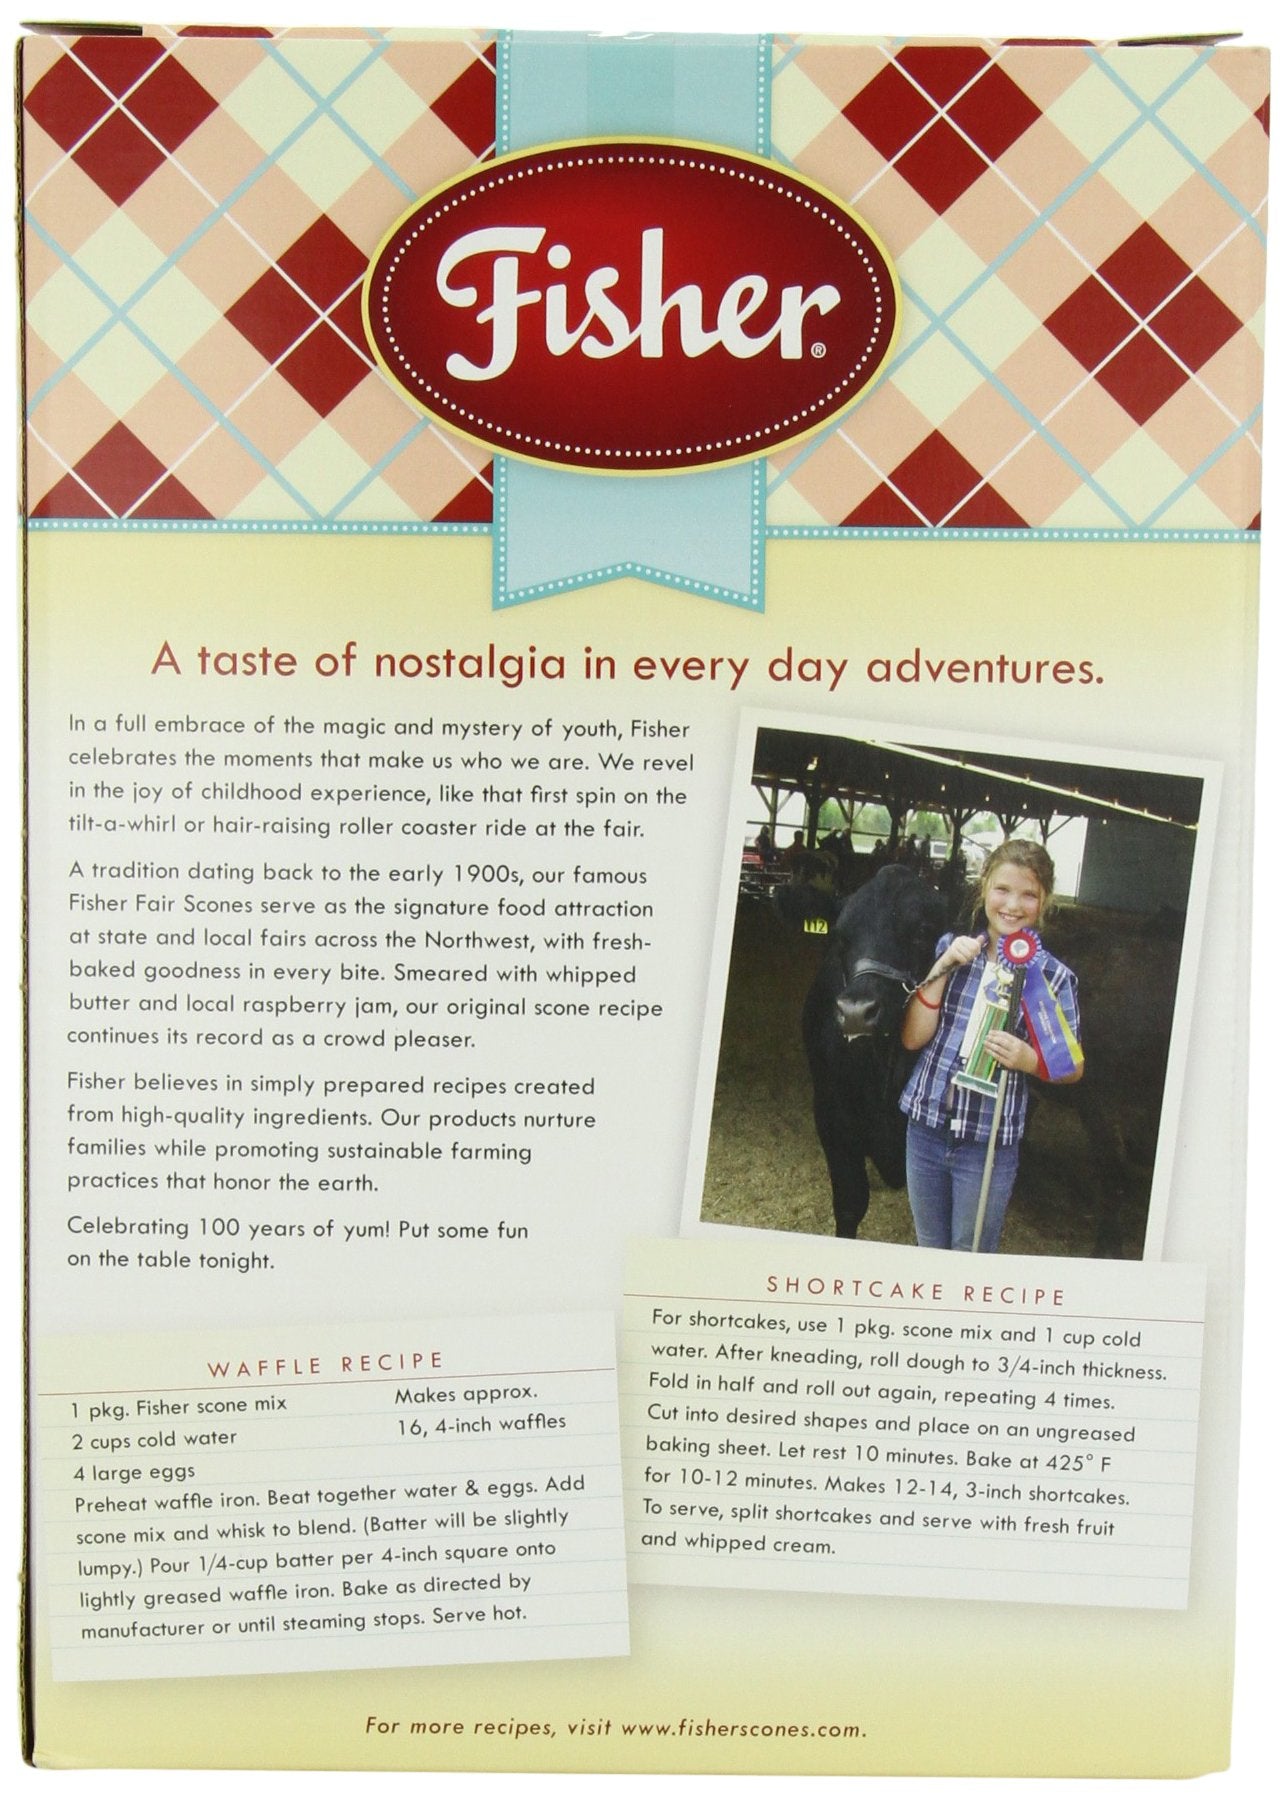 Fisher®
A taste of nostalgia in every day adventures.
In a full embrace of the magic and mystery of youth, Fisher
celebrates the moments that make us who we are. We revel
in the joy of childhood experience, like that first spin on the
tilt-a-whirl or hair-raising roller coaster ride at the fair.
A tradition dating back to the early 1900s, our famous
Fisher Fair Scones serve as the signature food attraction
at state and local fairs across the Northwest, with fresh-
baked goodness in every bite. Smeared with whipped
butter and local raspberry jam, our original scone recipe
continues its record as a crowd pleaser.
Fisher believes in simply prepared recipes created
from high-quality ingredients. Our products nurture
families while promoting sustainable farming
practices that honor the earth.
Celebrating 100 years of yum! Put some fun
on the table tonight.
112
WAFFLE RECIPE
1 pkg. Fisher scone mix
2 cups cold water
4 large eggs
Makes approx.
16, 4-inch waffles
Preheat waffle iron. Beat together water & eggs. Add
scone mix and whisk to blend. (Batter will be slightly
lumpy.) Pour 1/4-cup batter per 4-inch square onto
lightly greased waffle iron. Bake as directed by
manufacturer or until steaming stops. Serve hot.
SHORTCAKE RECIPE
For shortcakes, use 1 pkg. scone mix and 1 cup cold
water. After kneading, roll dough to 3/4-inch thickness.
Fold in half and roll out again, repeating 4 times.
Cut into desired shapes and place on an ungreased
baking sheet. Let rest 10 minutes. Bake at 425° F
for 10-12 minutes. Makes 12-14, 3-inch shortcakes.
To serve, split shortcakes and serve with fresh fruit
and whipped cream.
For more recipes, visit www.fisherscones.com.